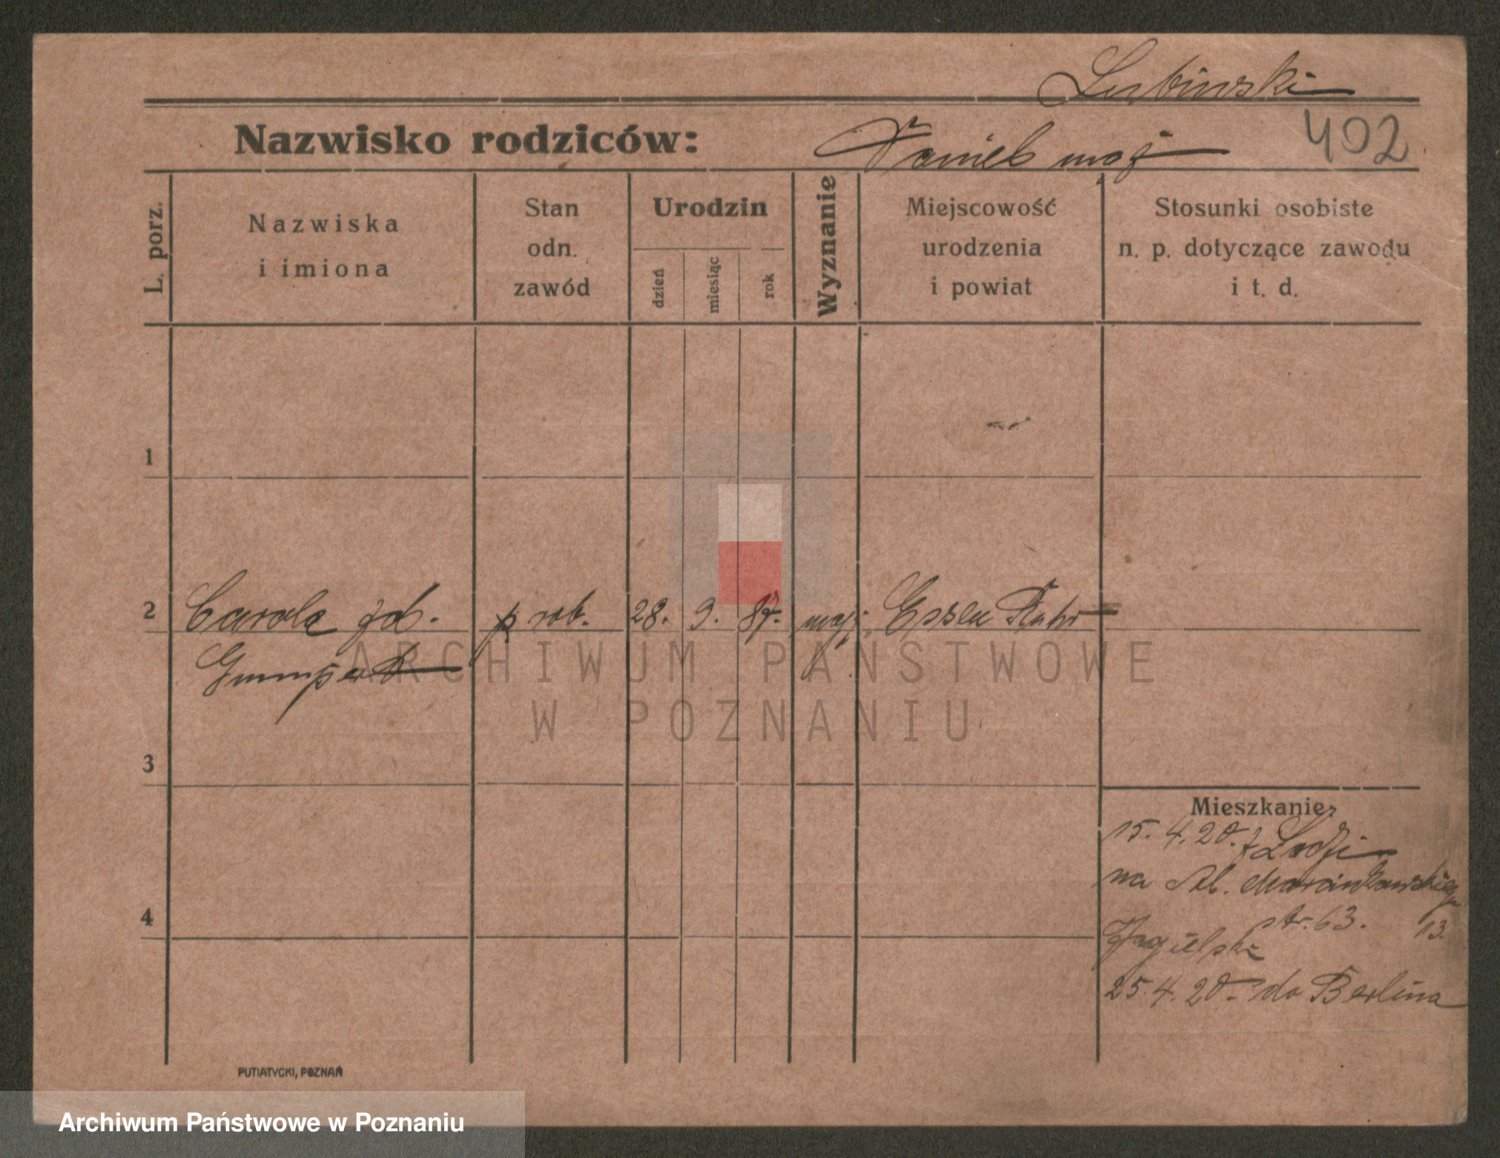 Lubinski
Nazwisko rodziców: Daniel moj 402
L. porz.
Nazwiska
i imiona
Stan
odn.
zawód
Urodzin
dzień
miesiąc
rok
Wyznanie
Miejscowość
urodzenia
i powiat
Stosunki osobiste
n. p. dotyczące zawodu
i t. d.
1
2 Carola zd. p rob. 28. 9. 87. mojż. Essen Ruhr
Gumpert
3
4
Mieszkanie:
15.4.20. z Lodzi
na Ał. Marcinkowskiego
str. 63. 13.
25.4.20 do Berlina
PUTIATYCKI, POZNAŃ
ARCHIWUM PAŃSTWOWE
W POZNANIU
Archiwum Państwowe w Poznaniu